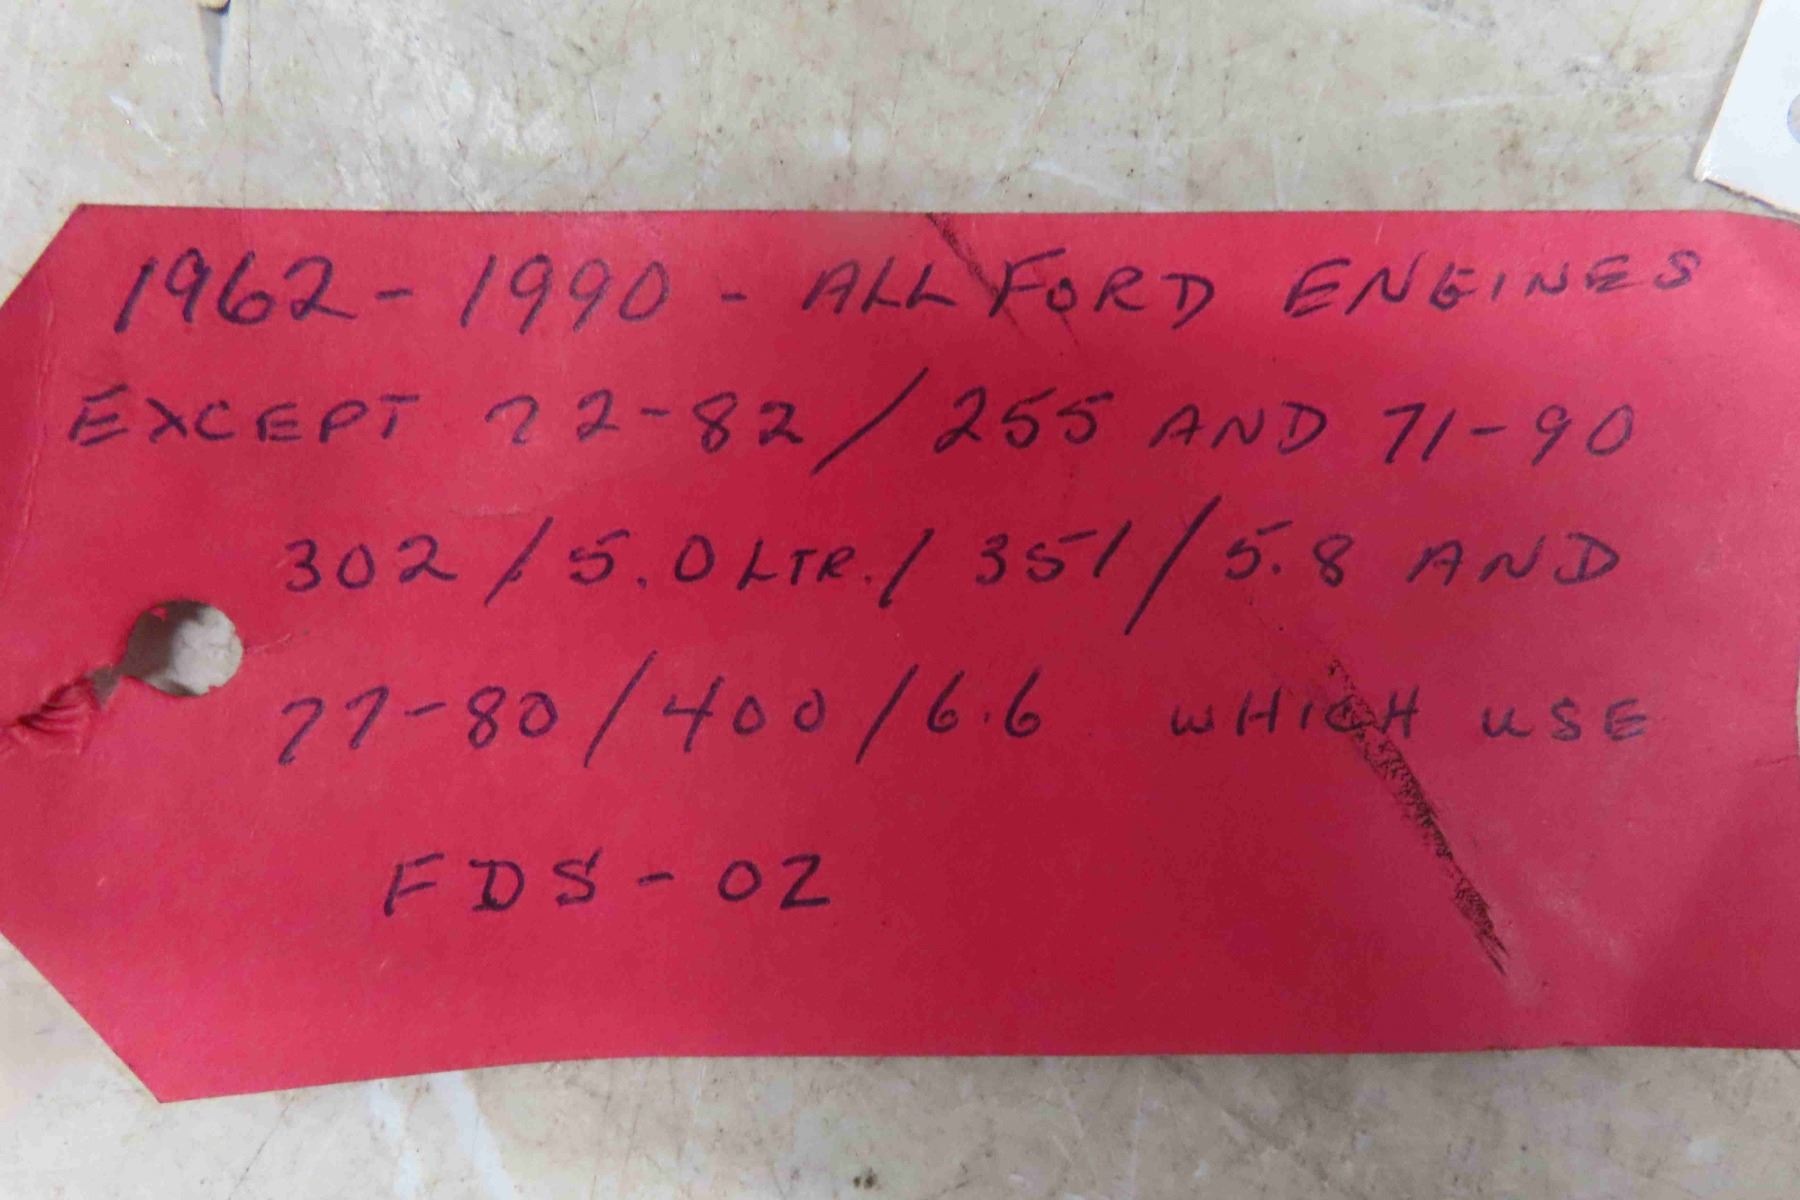 1962 - 1990 - ALL FORD ENGINES
EXCEPT 72-82 / 255 AND 71-90
302 / 5.0 LTR. / 351 / 5.8 AND
77-80 / 400 / 6.6 WHICH USE
FDS-02